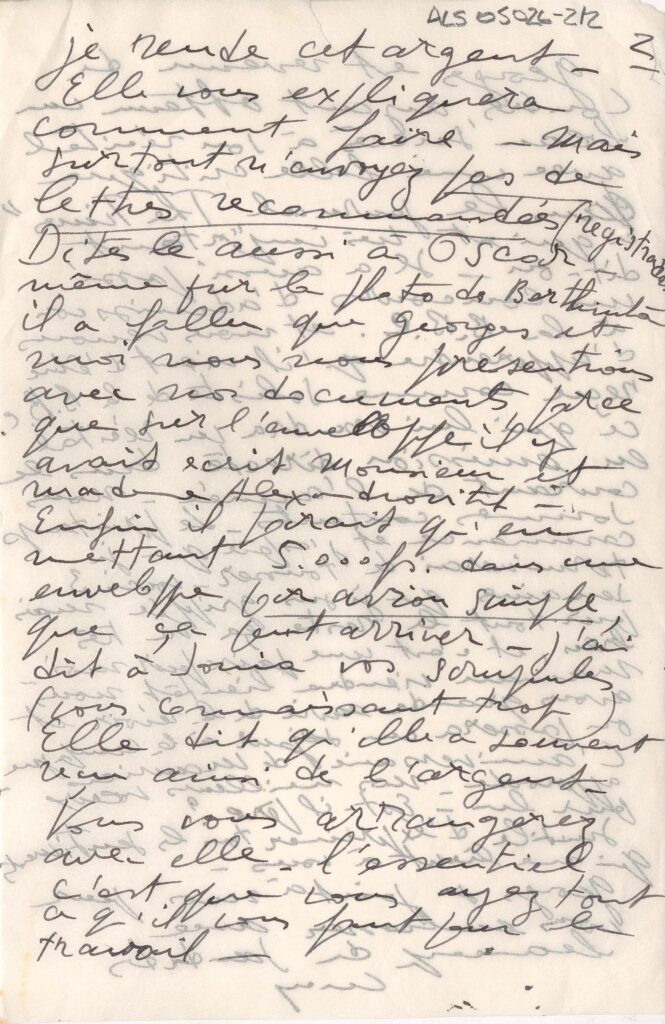 ALS 05026-2/2
2
je rende cet argent _
Elle vous expliquera
comment faire – mais
surtout n'envoyez pas de
lettres recommandées (registradas
Dites le aussi à Oscar –
même sur la photo de
il a fallu que Georges et
moi nous nous présentions
avec nos documents parce
que sur l'enveloppe il y
avait ecrit Monsieur et
madame Alexandrovitch –
Enfin il parait qu'en
mettant 5.000 fr. dans une
envelppe par avion simple,
que ça peut arriver – j'ai
dit à vos scrupules
(vous connaissant trop)
Elle dit qu'elle a souvent
reçu ainsi de l'argent _
Vous vous arrangerez
avec elle – l'essentiel
c'est que vous ayez tout
ce qu'il vous faut pour le
travail –